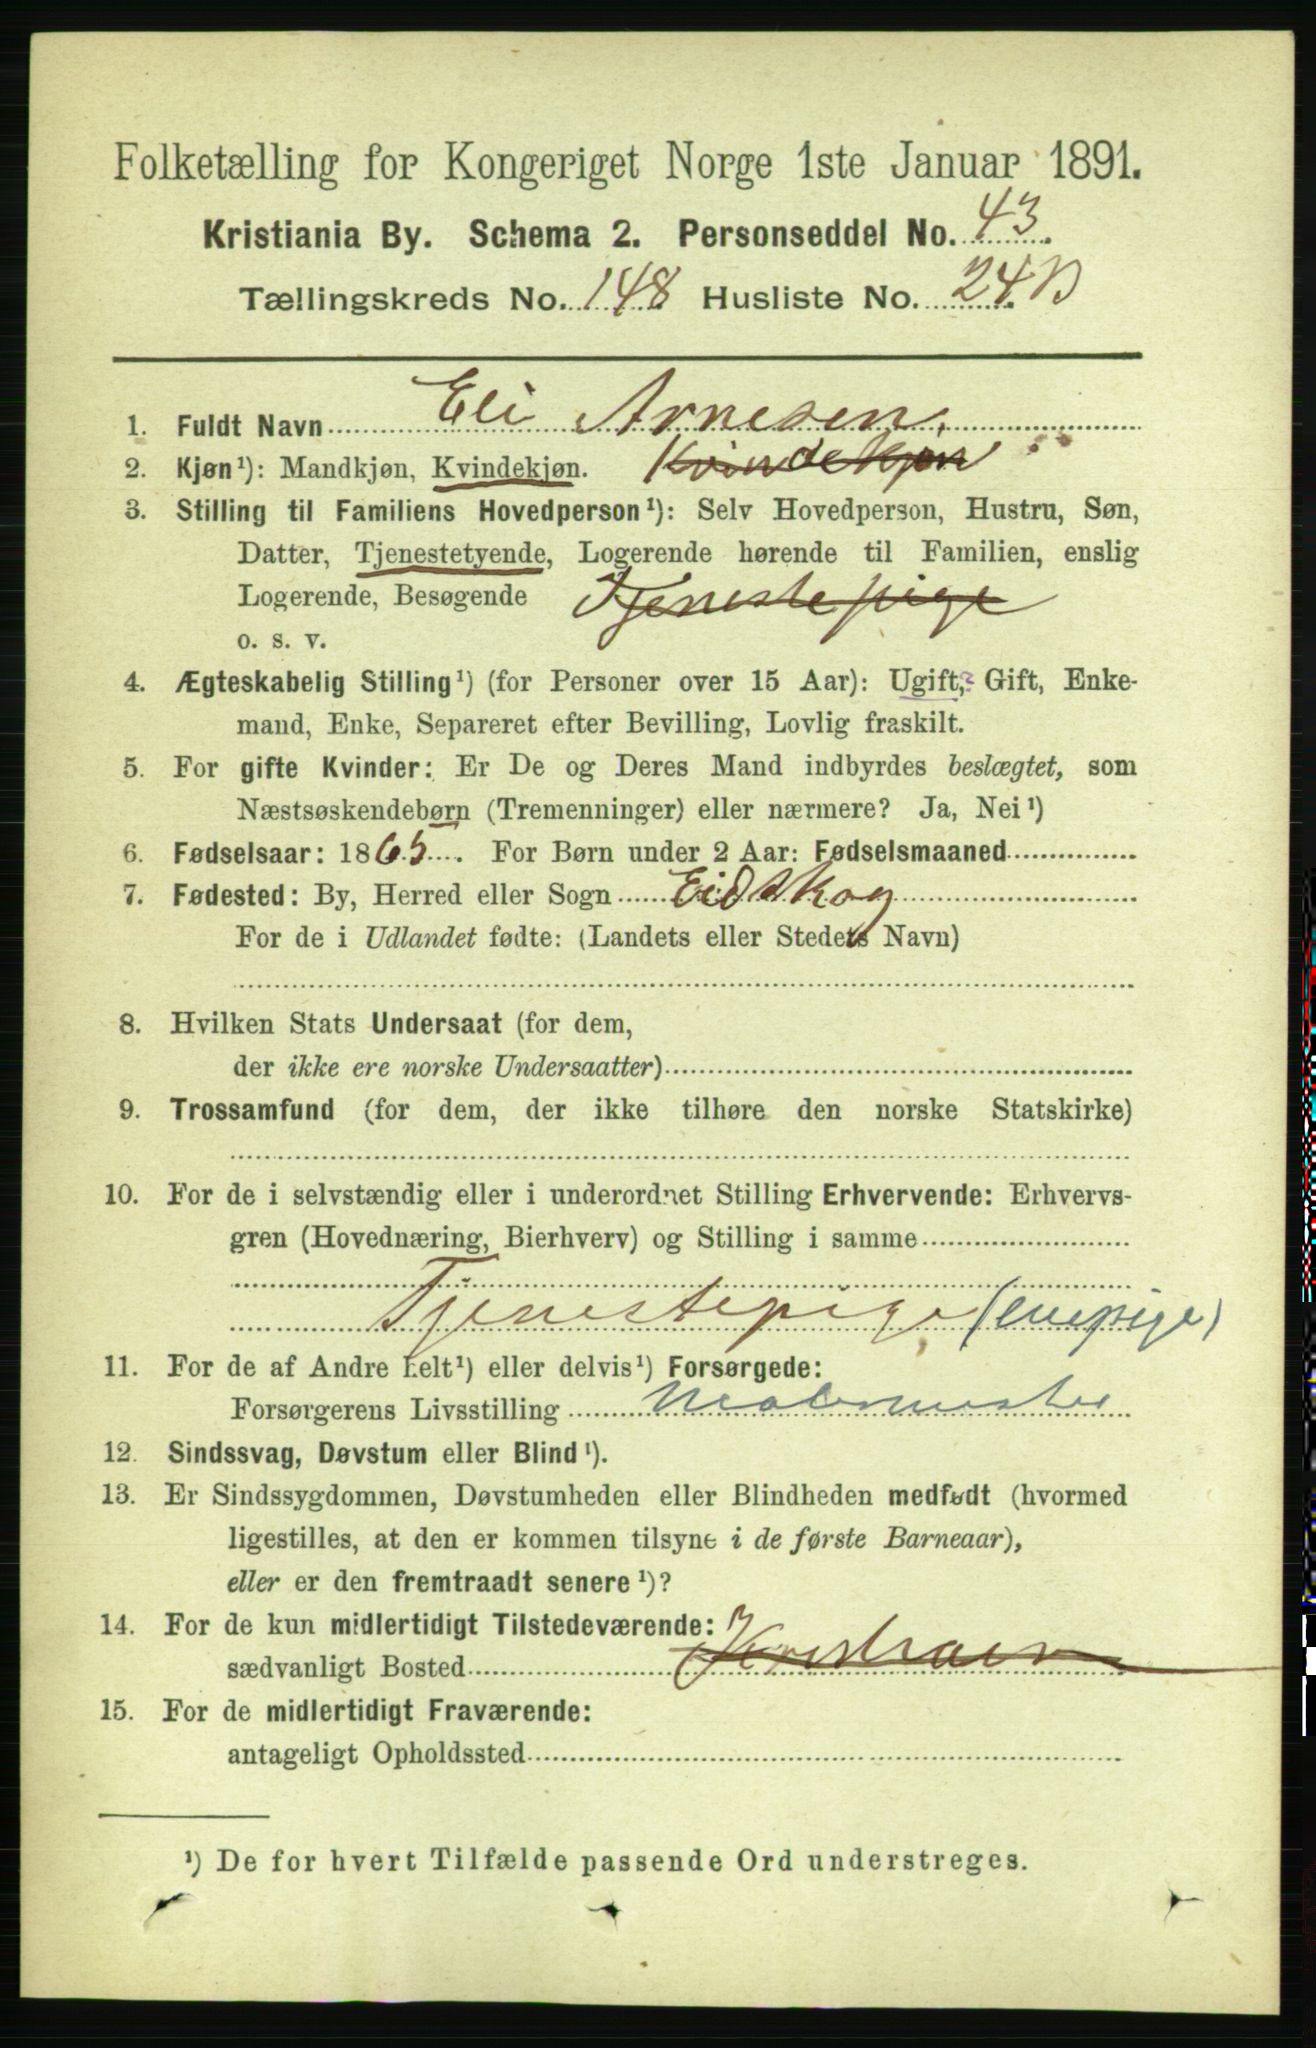 Folketælling for Kongeriget Norge 1ste Januar 1891.
Kristiania By. Schema 2. Personseddel No. 43.
Tællingskreds No. 148 Husliste No. 24 B
1. Fuldt Navn Eli Arnesen.
2. Kjøn¹): Mandkjøn, Kvindekjøn. Kvindekjøn
3. Stilling til Familiens Hovedperson¹): Selv Hovedperson, Hustru, Søn,
Datter, Tjenestetyende, Logerende hørende til Familien, enslig
Logerende, Besøgende Tjenestepige
o. s. v.
4. Ægteskabelig Stilling¹) (for Personer over 15 Aar): Ugift,? Gift, Enke-
mand, Enke, Separeret efter Bevilling, Lovlig fraskilt.
5. For gifte Kvinder: Er De og Deres Mand indbyrdes beslægtet, som
Næstsøskendebørn (Tremenninger) eller nærmere? Ja, Nei¹)
6. Fødselsaar: 1865. For Børn under 2 Aar: Fødselsmaaned
7. Fødested: By, Herred eller Sogn Eidskog
For de i Udlandet fødte: (Landets eller Stedets Navn)
8. Hvilken Stats Undersaat (for dem,
der ikke ere norske Undersaatter)
9. Trossamfund (for dem, der ikke tilhøre den norske Statskirke)
10. For de i selvstændig eller i underordnet Stilling Erhvervende: Erhvervs-
gren (Hovednæring, Bierhverv) og Stilling i samme
Tjenestepige (enepige)
11. For de af Andre helt¹) eller delvis¹) Forsørgede:
Forsørgerens Livsstilling Malermester
12. Sindssvag, Døvstum eller Blind¹).
13. Er Sindssygdommen, Døvstumheden eller Blindheden medfødt (hvormed
ligestilles, at den er kommen tilsyne i de første Barneaar),
eller er den fremtraadt senere¹)?
14. For de kun midlertidigt Tilstedeværende:
sædvanligt Bosted
15. For de midlertidigt Fraværende:
antageligt Opholdssted
¹) De for hvert Tilfælde passende Ord understreges.